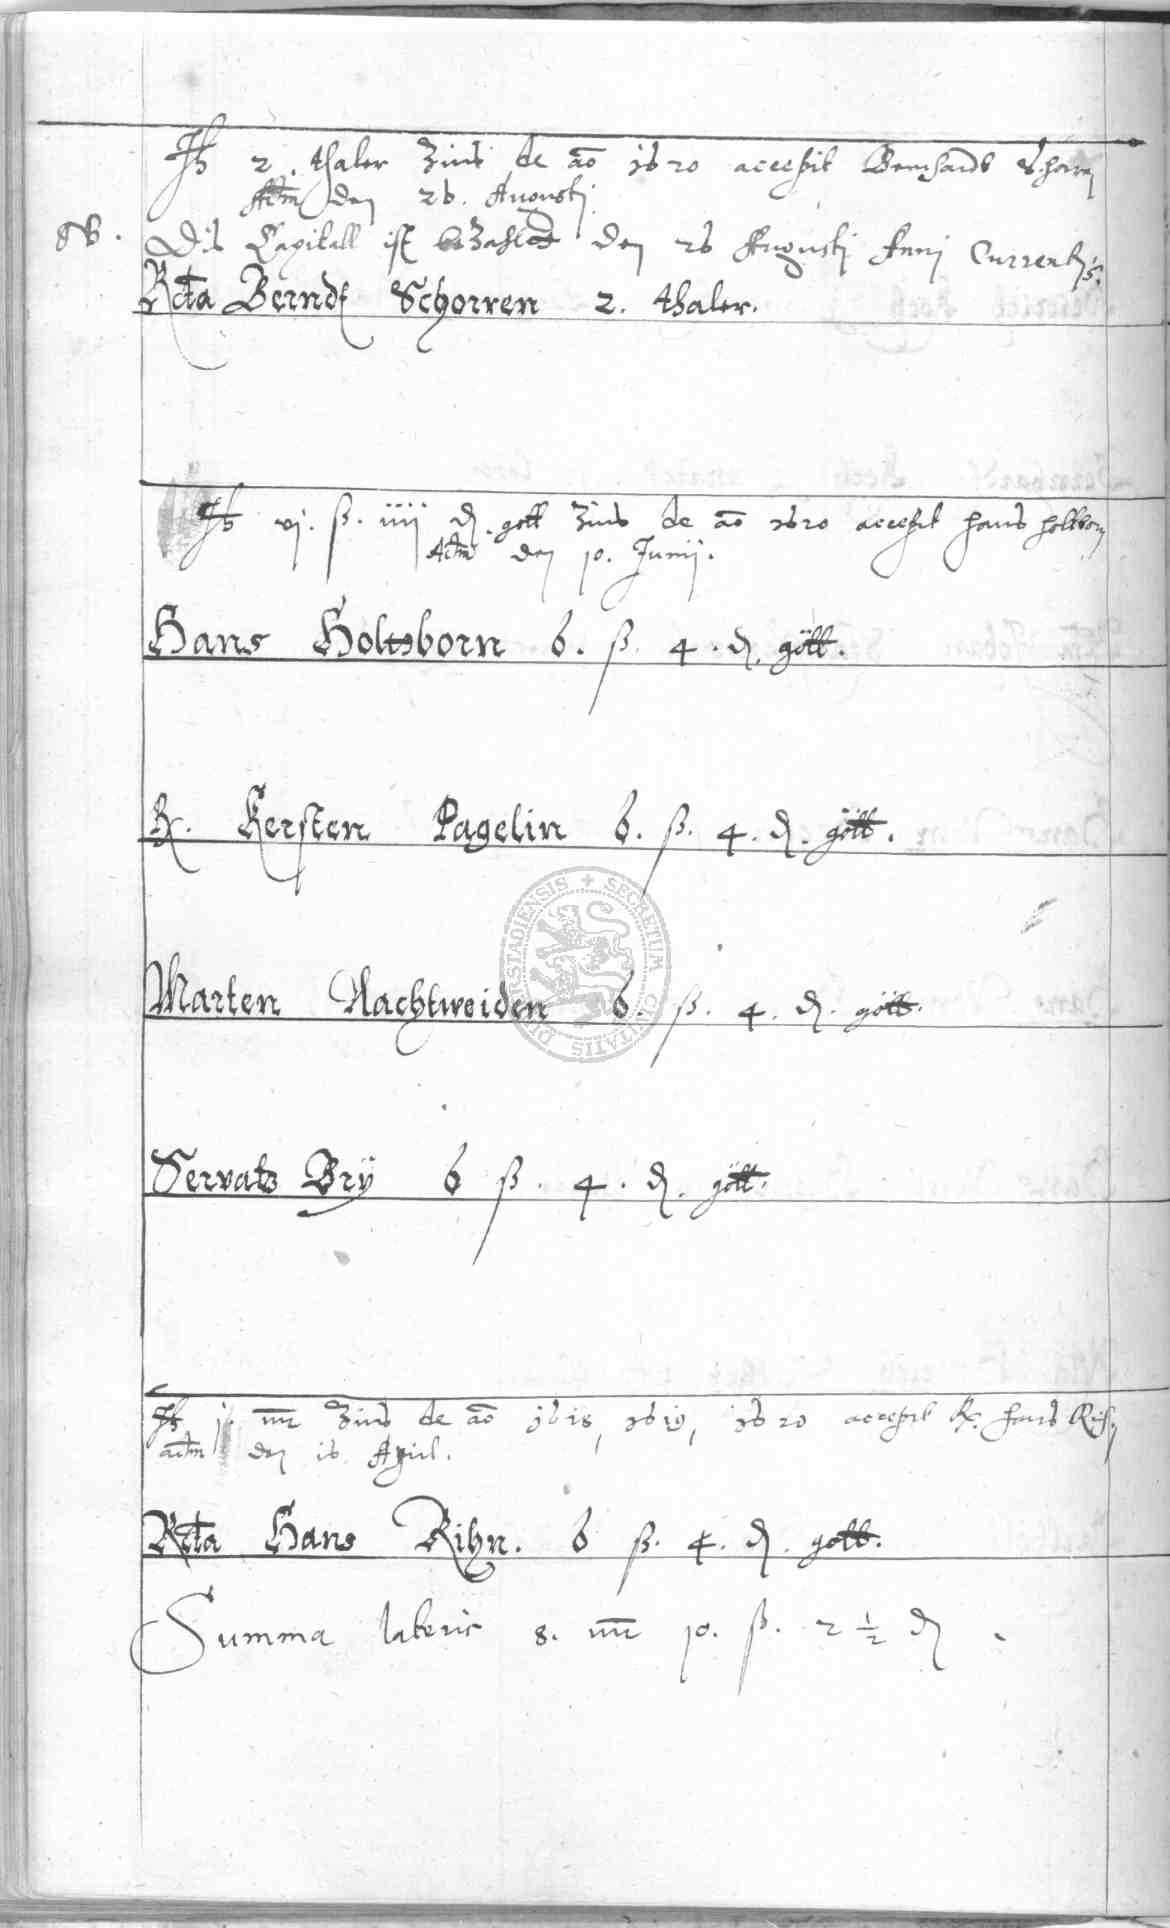 It 2. thaler Zins de ao 1620 accepit Bernhardt Schorren
Actm den 26. Augusti
NB. Dis Capitall ist bezahlet den 26 Augusti Anni Currentis.
Rcta Berndt Schorren 2. thaler.
It vj. ß. iiij ₰. gott Zins de ao 1620 accepit Hans Holtborn
Actm den 10. Junij.
Hans Holtzborn 6. ß. 4. ₰. gött.
R. Kersten Pagelin 6. ß. 4. ₰. gött.
Marten Nachtweiden 6. ß. 4. ₰. gött.
Servatz Brÿ 6 ß. 4. ₰. gött.
It j. mr Zins de ao 1618, 1619, 1620 accepit Rc. Hans
actm den 16. April.
Rcta Hans Rihn. 6 ß. 4. ₰. gott.
Summa lateris 8. mr 10. ß. 2 1/2 ₰
SECRETUM CIVITATIS DUDERSTADIENSIS